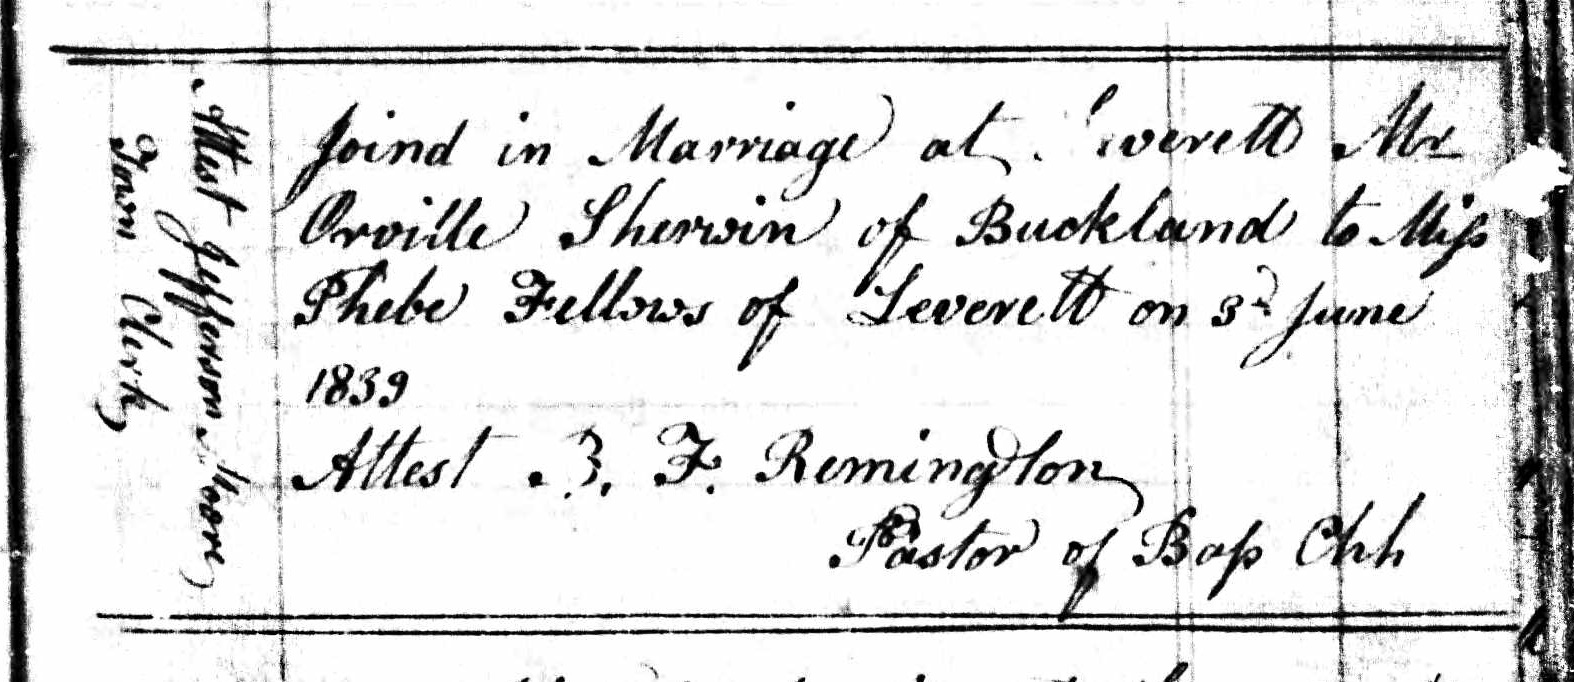 Joind in Marriage at Leverett Mr
Orville Sherwin of Buckland to Miss
Phebe Fellows of Leverett on 3d June
1839
Attest B. F. Remington
Pastor of Bap Chh
Attest Jefferson Moore
Town Clerk